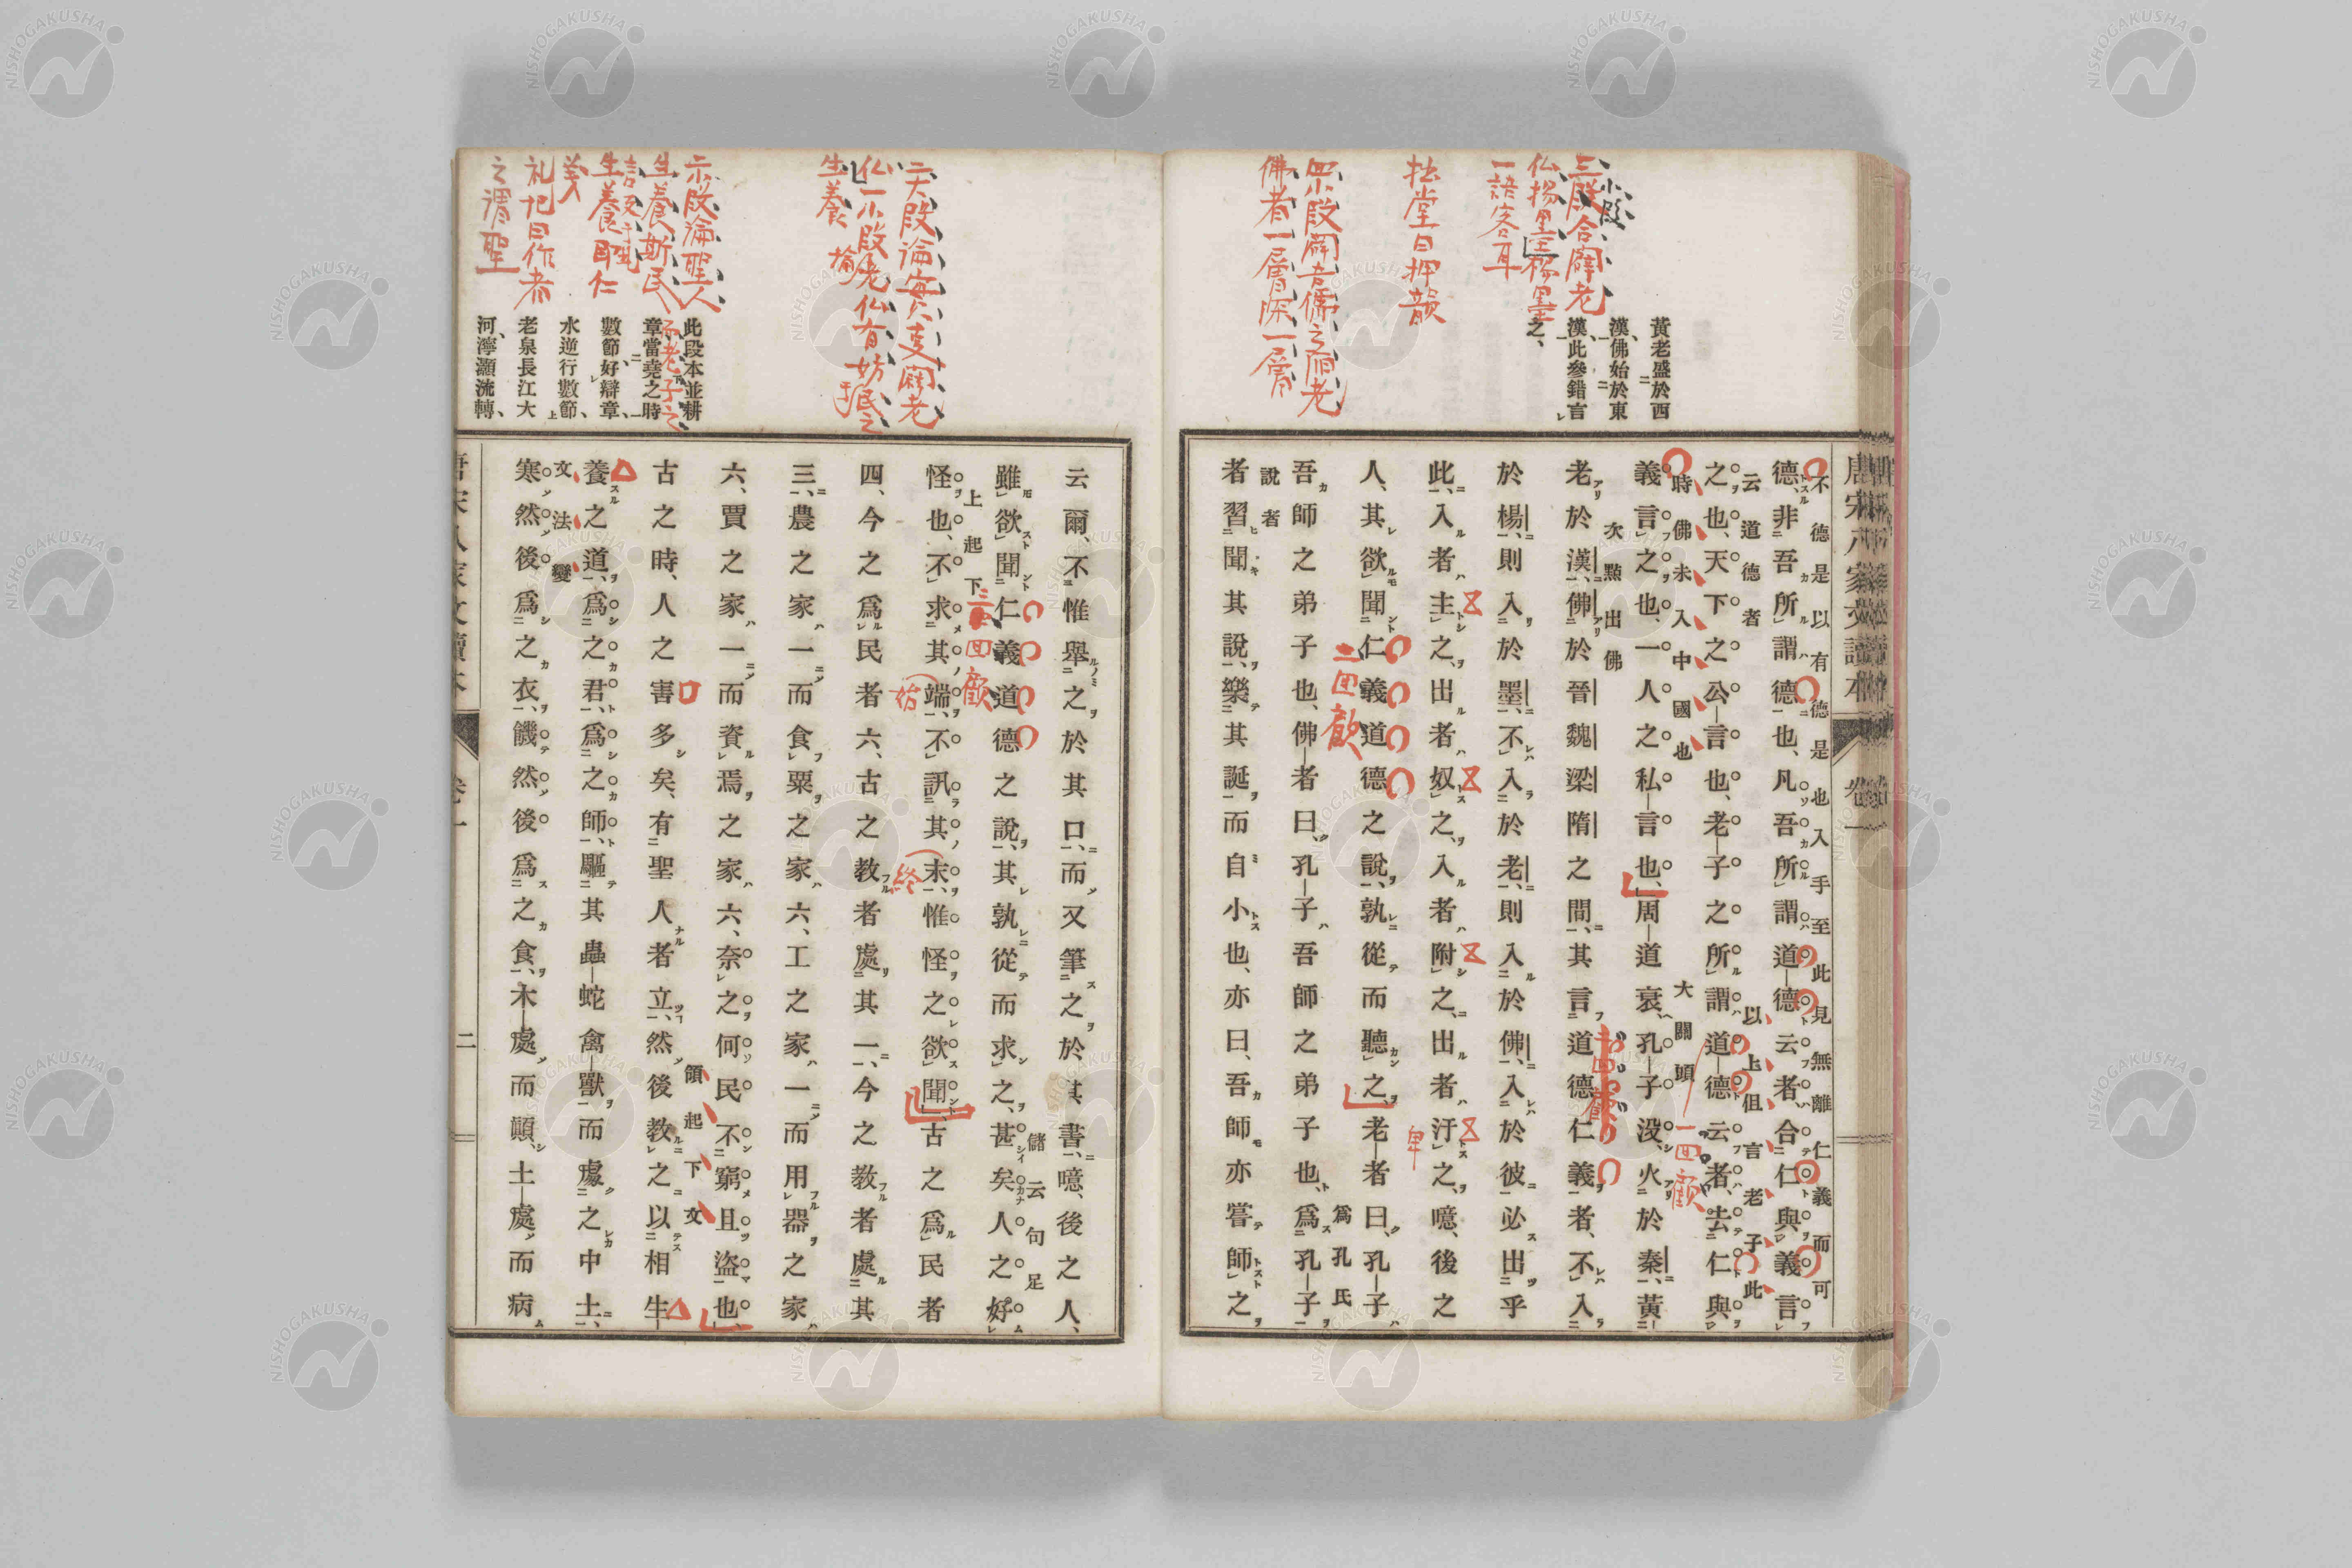 唐宋八家文讀本
卷一
不德是以有德是也入手至此見無離仁義而可
德、非吾所謂德也、凡吾所謂道德云者、合仁與義言
云道德者
以上但言老子此
之也、天下之公言也、老子之所謂道德云者、去仁與
時佛未入中國也
大關頭
一回顧
義言之也、一人之私言也、周道衰、孔子沒、火於秦、黃
次點出佛
老於漢、佛於晉魏梁隋之間、其言道德仁義者、不入
於楊、則入於墨、不入於老、則入於佛、入於彼必出乎
此、入者主之、出者奴之、入者附之、出者汙之、噫、後之
卑
二回顧
人、其欲聞仁義道德之說、孰從而聽之、老者曰、孔子
爲孔氏
吾師之弟子也、佛者曰、孔子吾師之弟子也、爲孔子
說者
者習聞其說、樂其誕而自小也、亦曰、吾師亦嘗師之
黃老盛於西
漢、佛始於東
漢、此參錯言
之、
小段
三段合闢老
仏楊墨楊墨
一語客耳
拙堂曰押韻
四小段闢吾儒之溺老
佛者一層深一層
云爾、不惟舉之於其口、而又筆之於其書、噫、後之人、
儲云句足
雖欲聞仁義道德之說、其孰從而求之、甚矣人之好
上起下
三回顧
怪也、不求其端、不訊其末、惟怪之欲聞、古之爲民者
始
終
四、今之爲民者六、古之教者處其一、今之教者處其
三、農之家一而食粟之家六、工之家一而用器之家
六、賈之家一而資焉之家六、奈之何民不窮且盜也、
領起下文
古之時、人之害多矣、有聖人者立、然後教之以相生
養之道、爲之君、爲之師、驅其蟲蛇禽獸而處之中土、
文法變
寒然後爲之衣、饑然後爲之食、木處而顚、土處而病
二大段論實事闢老
仏一小段老仏有妨民之
生養
示段論聖人
生養斯民
生養即仁
義
礼記曰作者
之謂聖
此段本並耕
章當堯之時
數節好辯章、
水逆行數節、
老泉長江大
河、渾灝流轉、
卷一
二
NISHOGAKUSHA